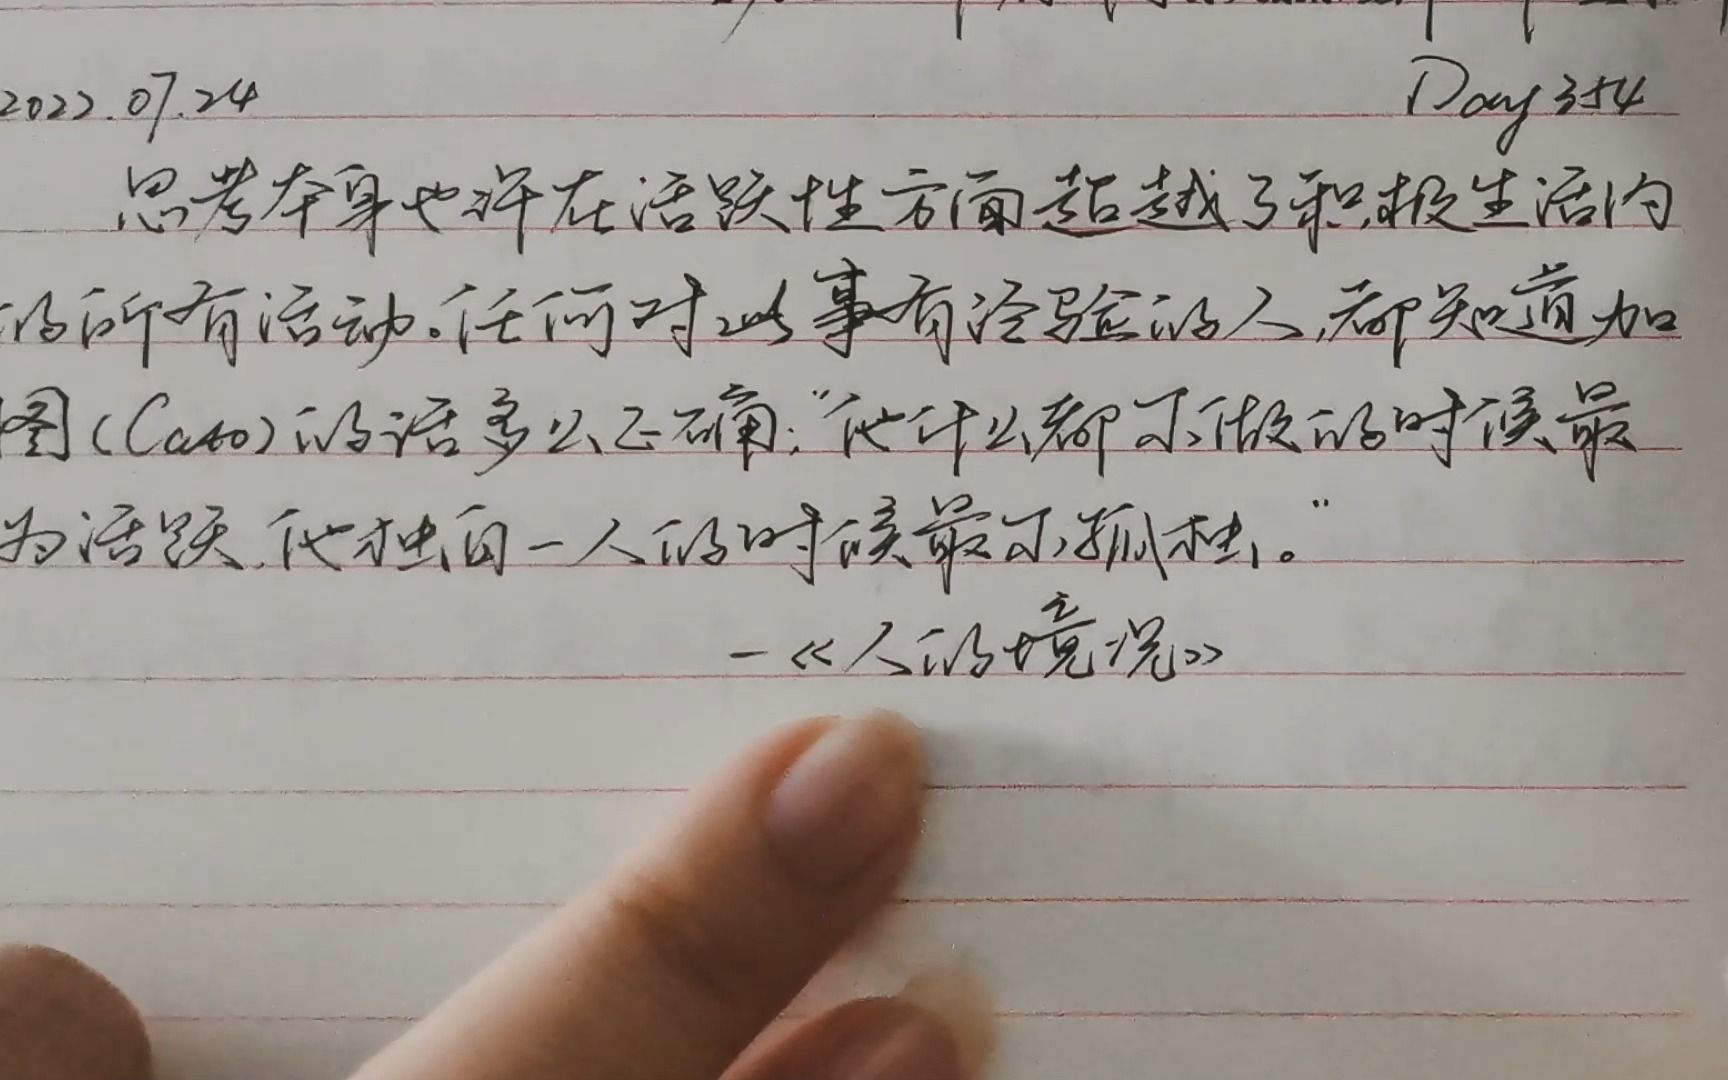 2022.07.24
Day 354
思考本身也许在活跃性方面超越了积极生活内
的所有活动。任何对此事有经验的人,都知道加
图(Cato)的话多么正确:"他什么都不做的时候最
为活跃,他独自一人的时候最不孤独。"
—《人的境况》